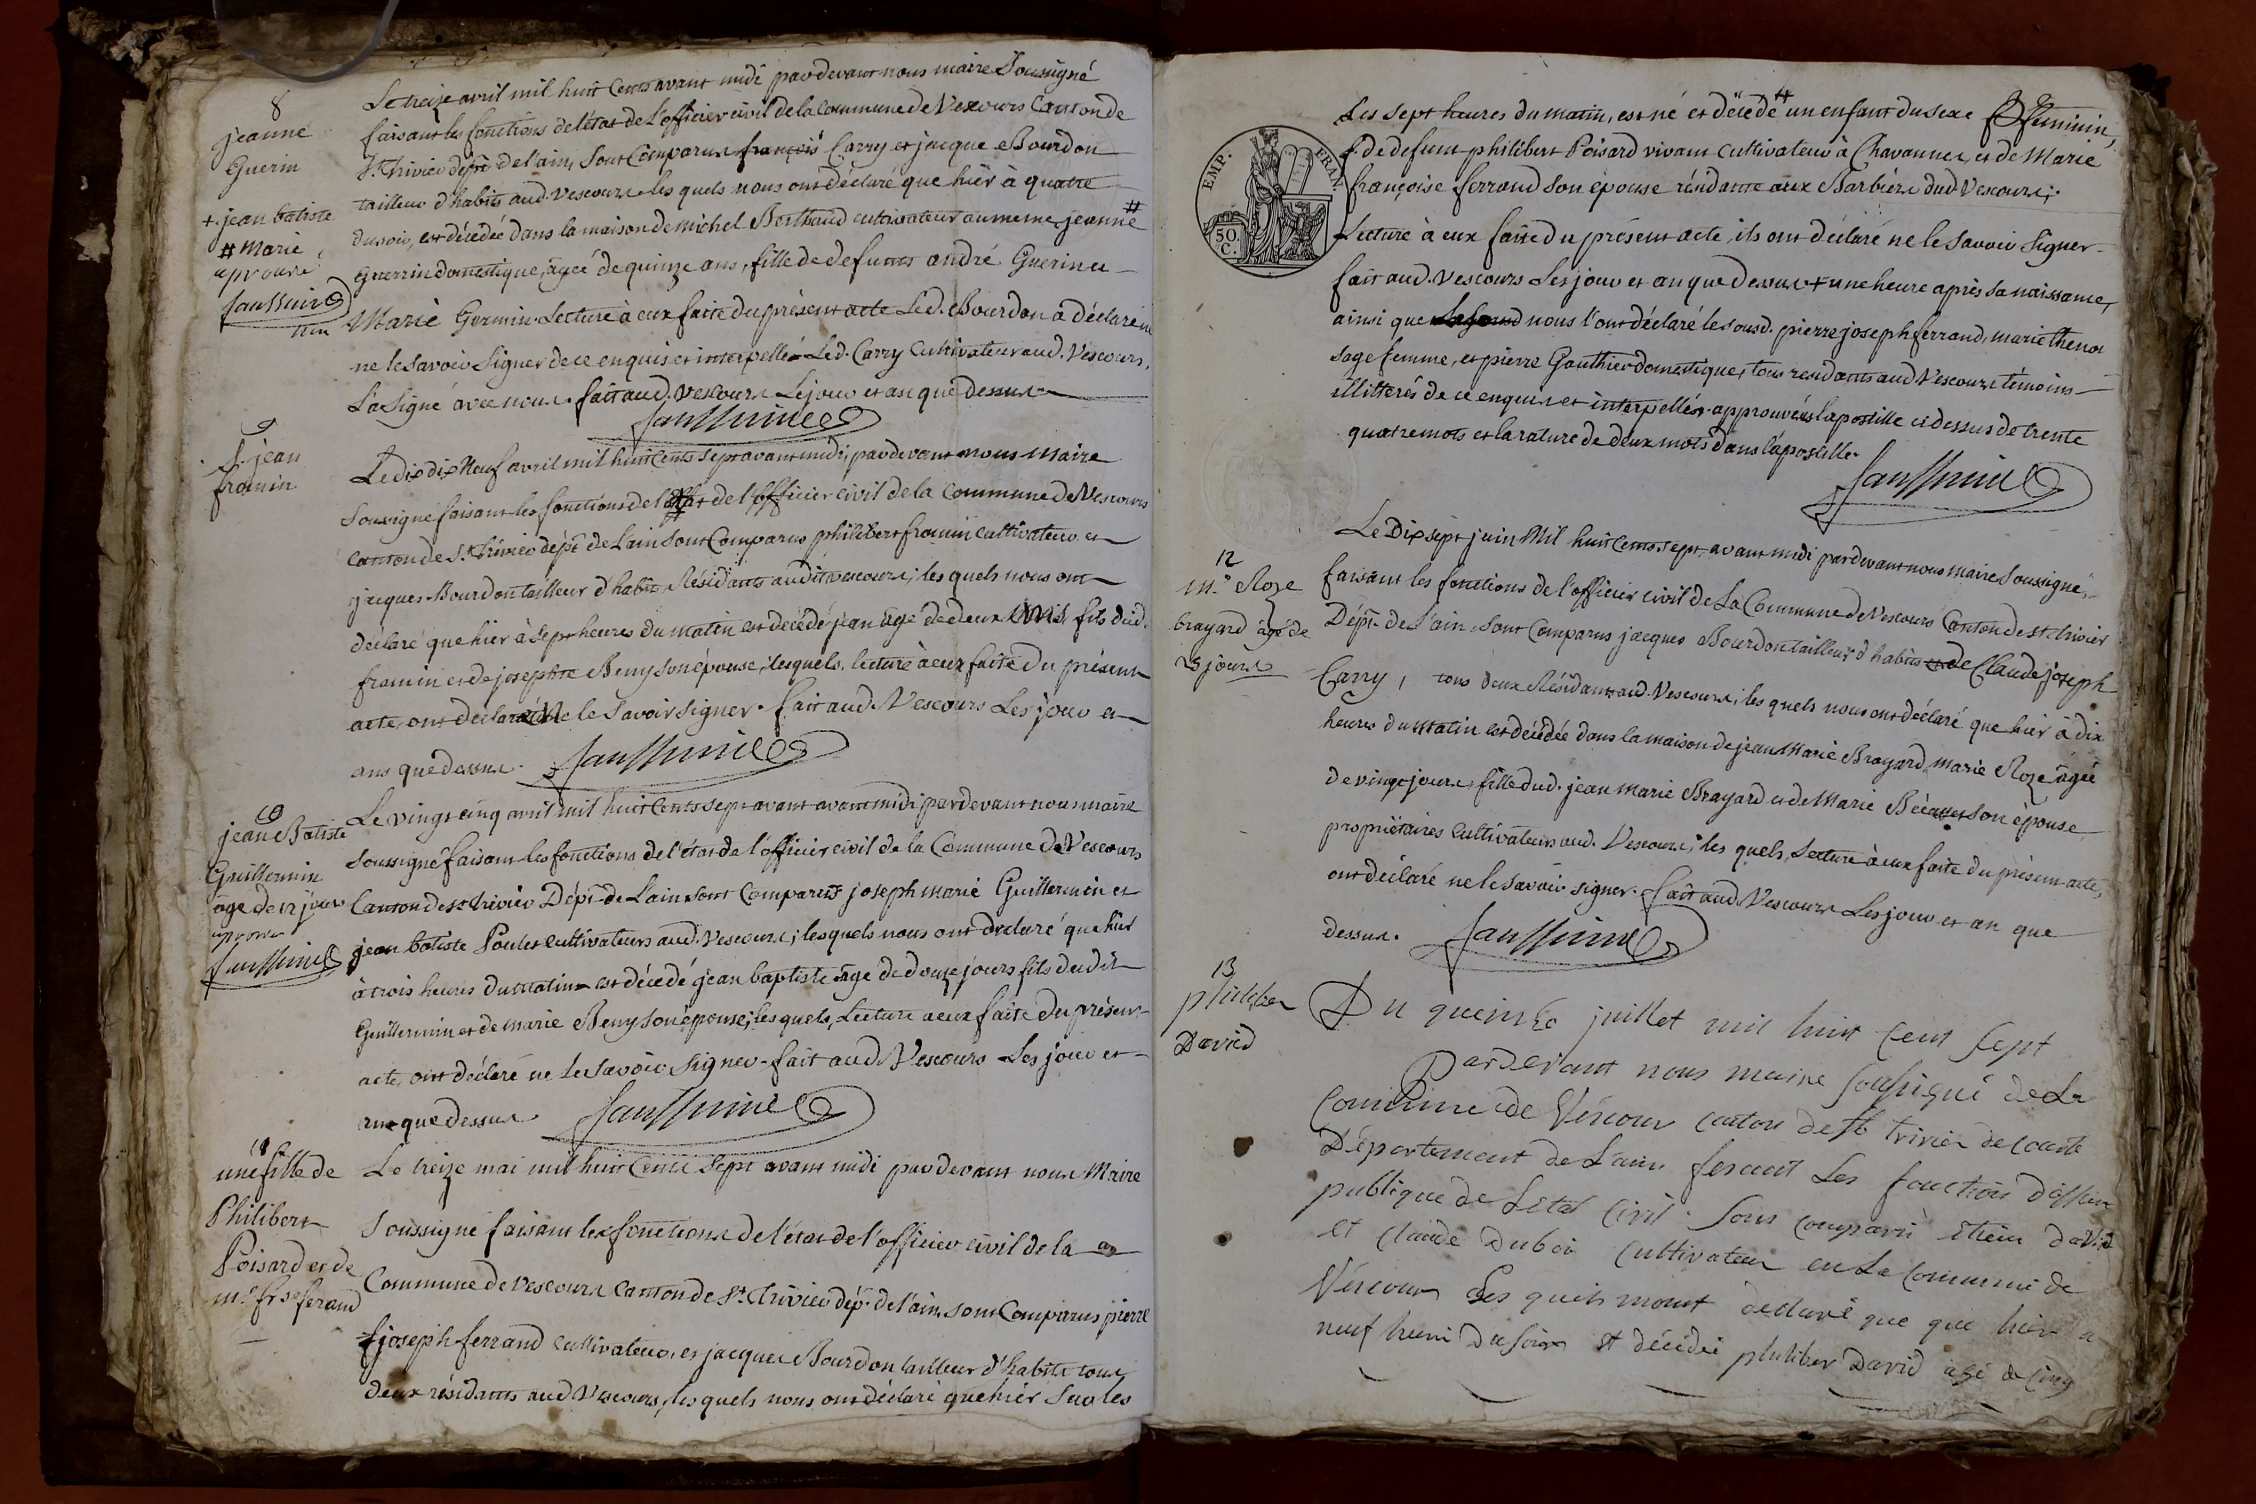 8
jeanne
Guerin
+ jean batiste
# Marie
aprouvé
Le treize avril mil huit Cents avant midi pardevant nous maire Soussigné
faisant les fonctions de l'état de l'officier civil de la commune de Vescours Canton de
St. trivier dépt. de l'ain, Sont Comparus françois Carry et jacque Bourdon
tailleur d'habits aud. Vescours les quels nous ont déclaré que hier à quatre
du soir, est décédée dans la maison de michel Berthaud cultivateur au meme, jeanne #
Guerrin domestique, agée de quinze ans, fille de defunts andré Guerin et
Marie Germin. Lecture à eux faite du présent acte Led. Bourdon a déclaré
ne le Savoir Signer de ce enquis et interpellé Led. Carry Cultivateur aud. Vescours,
L'a Signé avec nous. fait aud. Vescours Le jour et an que dessus
9
jean
fromin
Le dix dix Neuf avril mil huit Cents Sept avant midi, pardevant nous Maire
Soussigné faisant les fonctions de l'état de l'officier civil de la Commune de Vescours
Canton de St. trivier dépt. de Lain Sont Comparus philibert fromin Cultivateur et
jacques Bourdon tailleur d'habits Résidants audit vescours; les quels nous ont
déclaré que hier à Sept heures du matin est décédé jean agé de deux mois, fils dud.
fromin et de josephte Beny son épouse, lesquels, lecture à eux faite du présent
acte, ont déclaré ne le Savoir signer. fait aud. Vescours Les jour et
ans que dessus.
10
jean Batiste
Guillermin
agé de 12 jours
aprouvé
Le vingt cinq avril mil huit Cents Sept avant avant midi pardevant nous maire
Soussigné faisant les fonctions de l'état de l'officier civil de la Commune de Vescours
Canton de st trivier Dépt. de Lain Sont Comparus joseph marie Guillermin et
jean batiste Poulet Cultivateurs aud. Vescours; lesquels nous ont declaré que hier
à trois heures du matin est décédé jean baptiste agé de douze jours fils dudit
Guillermin et de marie Beny son épouse; les quels, Lecture a eux faite du présent
acte, ont déclaré ne le Savoir Signer. fait aud. Vescours Les jour et
an que dessus
11
une fille de
Philibert
Poisard et de
me. frse ferand
Le treize mai mil huit Cents Sept avant midi pardevant nous Maire
Soussigné faisant les fonctions de l'état de l'officier civil de la
Commune de Vescours Canton de St. trivier dép. de l'ain, sont Comparus pierre
joseph ferrand Cultivateur, et jacques Bourdon tailleur d'habits tous
deux résidants aud. Vescours, les quels nous ont déclaré que hier Sur les
EMP. FRAN.
50. C.
Les sept heures du matin, est né et décédé # un enfant du sexe feminin,
de defunt philibert Poisard vivant Cultivateur à Chavannes, et de Marie
françoise ferrand Son épouse résidante aux Barbière dud. Vescours;
Lecture à eux faite du présent acte, ils ont déclaré ne le Savoir Signer
fait aud. Vescours Les jour et an que dessus + une heure après sa naissance,
ainsi que nous l'ont déclaré le sousd. pierre joseph ferrand, marie thenot
sage femme, et pierre Gauthier domestique, tous residants aud Vescours témoins
illittérés de ce enquis et interpellés. approuvés l'apostille ci dessus de trente
quatre mots et la rature de deux mots dans l'apostille.
12
me. Roze
brayard agé de
20 jours
Le Dix sept juin Mil huit Cents sept avant midi pardevant nous maire Soussigné,
faisant les fonctions de l'officier civil de La Commune de Vescours Canton de st trivier
Dépt. de L'ain, Sont Comparus jacques Bourdon tailleur d'habits et de Claude joseph
Carry, tous deux Résidants aud. Vescours; les quels nous ont déclaré que hier à dix
heures du Matin est décédée dans la maison de jean Marie Brayard, marie Roze agée
de vingt jours, fille dud. jean marie Brayard et de Marie son épouse
propriétaires Cultivateurs aud. Vescours; les quels, Lecture à eux faite du présent acte,
ont déclaré ne le Savoir signer. fait aud. Vescours Les jour et an que
dessus.
13
philiber
David
Du queinze juillet mil huit cent sept
Pardevant nous maire Soussigné de La
Commune de Vescour canton de St trivier de courte
Département de L'ain fesant Les fonction d'offisier
publique de L'état Civil. Sont comparu étiene david
et claude Duboi cultivateur en La commune de
Vescour Les quels mont declaré que que hier a
neuf heure Du soir et décédé philiber David agé de cinq